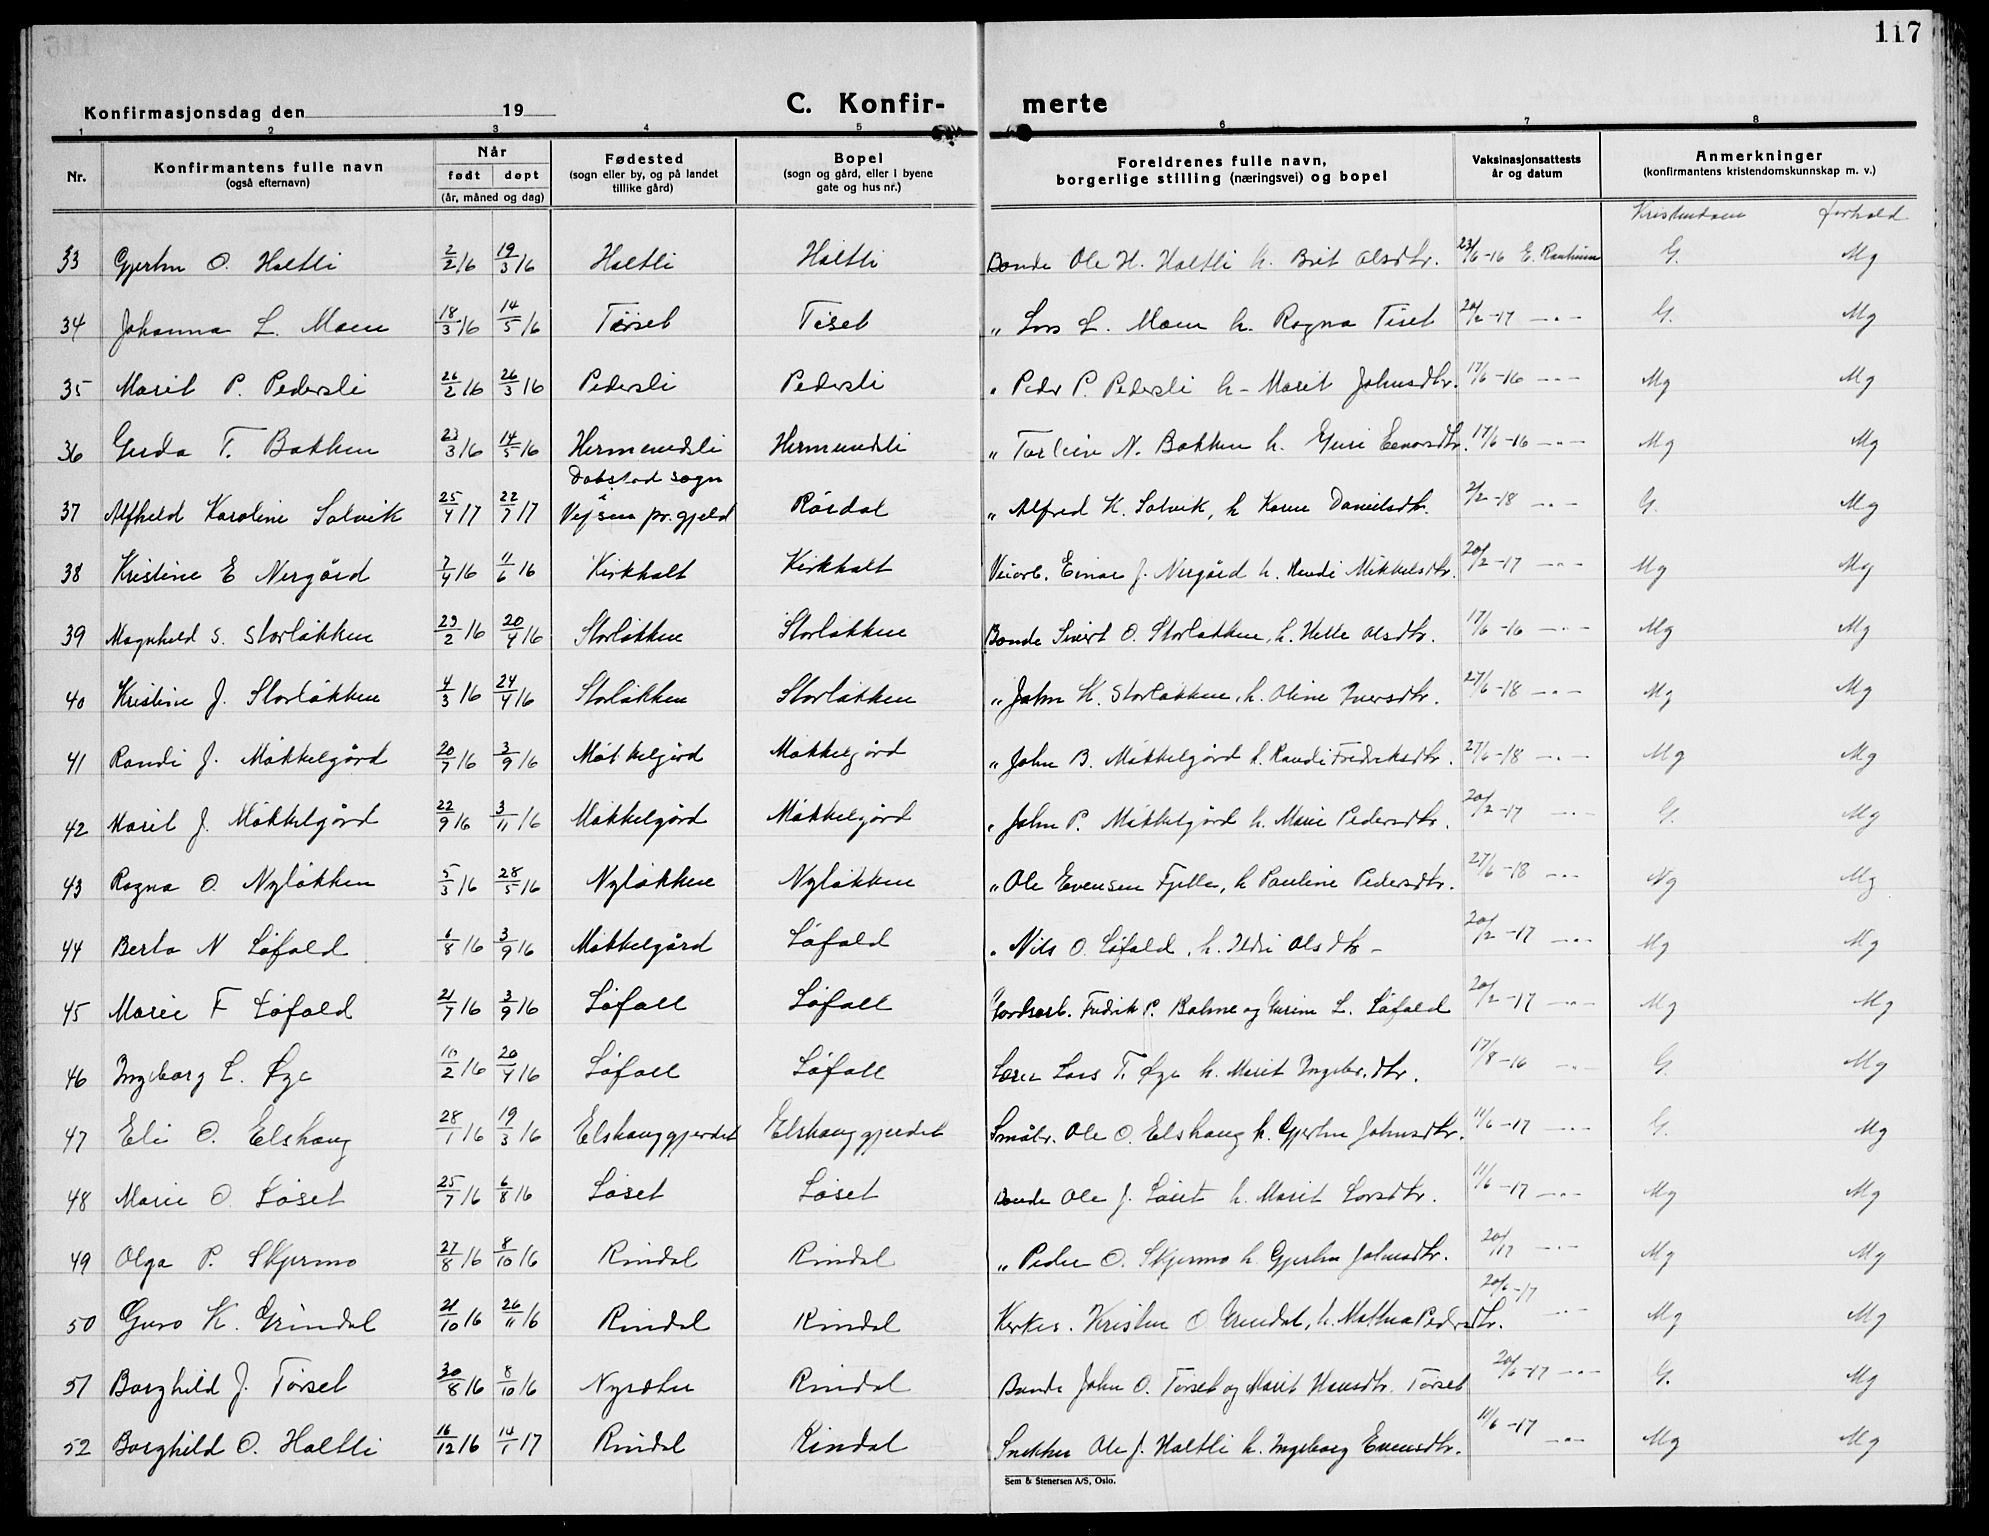 117
Konfirmasjonsdag den 19
C. Konfir- merte
1 2 3 4 5 6 7 8
Nr.
Konfirmantens fulle navn
(også efternavn)
Når
født døpt
(år, måned og dag)
Fødested
(sogn eller by, og på landet
tillike gård)
Bopel
(sogn og gård, eller i byene
gate og hus nr.)
Foreldrenes fulle navn,
borgerlige stilling (næringsvei) og bopel
Vaksinasjonsattests
år og datum
Anmerkninger
(konfirmantens kristendomskunnskap m. v.)
Kristendom forhold
33 Gjertru O. Holtli 2/2 16 19/3 16 Holtli Holtli Bonde Ole H. Holtli h. Brit Olsdtr. 23/6-16 G. Mg
34 Johanna L. Moen 18/3 16 14/5 16 Tørset Tiset " Lars L. Moen h. Ragna Tiset 20/2-17 -"- G. Mg
35 Marit P. Pedersli 26/2 16 26/3 16 Pedersli Pedersli " Peder P. Pedersli h- Marit Johnsdtr. 17/6-16 -"- Mg Mg
36 Guda T. Bakken 23/3 16 14/5 16 Hermundsli Hermundsli " Torleiv N. Bakken h. Guri Eenorsdtr. 17/6-16 -"- Mg Mg
Dabstad sogn
37 Alfhild Karoline Solvik 25/4 17 22/7 17 i Vejsen pr.gjeld Rørdal " Alfred K. Solvik, h Karen Danielsdtr. 2/2-18 -"- G. Mg
38 Kristine E Nergård 7/4 16 11/6 16 Kirkholt Kirkholt Veiarb. Einar J. Nergård h. Randi Mikkelsdtr. 20/2-17 -"- Mg Mg
39 Magnhild S. Storløkken 29/2 16 20/4 16 Storløkken Storløkken Bonde Sivert O. Storløkken, h. Helle Olsdtr. 17/6-16 -"- Mg Mg
40 Kristine J. Storløkken 4/3 16 24/4 16 Storløkken Storløkken " John K. Storløkken, h. Oline Iversdtr. 27/6-18 -"- Mg Mg
41 Randi J. Møkkelgård 20/7 16 3/9 16 Møkkelgård Møkkelgård " John B. Møkkelgård h. Randi Fredriksdtr. 27/6-18 -"- Mg Mg
42 Marit J. Møkkelgård 22/9 16 3/11 16 Møkkelgård Møkkelgård " John P. Møkkelgård h. Marie Pedersdtr. 20/2-17 -"- G. Mg
43 Ragna O. Nyløkken 5/3 16 28/5 16 Nyløkken Nyløkken " Ole Evensen Fjelle, h Pauline Pedersdtr. 27/6-18 -"- Ng Mg
44 Berta N Løfald 6/8 16 3/9 16 Møkkelgård Løfald " Nils O. Løfald, h. Ildri Olsdtr- 20/2-17 -"- Mg Mg
45 Marie F Løfald 21/7 16 3/9 16 Løfall Løfall Gårdsarb. Fredrik P. Bolme og Gurine L. Løfald 20/2-17 -"- Mg Mg
46 Ingeborg L. Øye 10/2 16 20/4 16 Løfall Løfall Lærer Lars T. Øye h. Marit Ingebr.dtr. 17/8-16 -"- G. Mg
47 Eli O. Elshaug 28/1 16 19/3 16 Elshauggjerdet Elshauggjerdet Småbr. Ole O. Elshaug h. Gjertru Johnsdtr. 11/6-17 -"- G. Mg
48 Marie O Løset 25/7 16 6/8 16 Løset Løset Bonde Ole J. Løset h. Marit Larsdtr. 11/6-17 -"- Mg Mg
49 Olga P. Skjermo 27/8 16 8/10 16 Rindal Rindal " Peder O. Skjermo h. Gjertru Johnsdtr. -"- Mg Mg
50 Guro K. Grindal 21/10 16 26/11 16 Rindal Rindal Kirkes. Kristen O Grindal, h. Mathea Pedersdtr. 20/6-17 -"- Mg Mg
51 Borghild J. Tørset 30/8 16 8/10 16 Nysæter Rindal Bonde John O. Tørset og Marit Hansdtr. Tørset 20/6-17 -"- G. Mg
52 Borghild O. Holtli 16/12 16 14/1 17 Rindal Rindal Snekker Ole J. Holtli h. Ingeborg Evensdtr. 11/6-17 -"- Mg Mg
Sem & Stenersen A/S, Oslo.